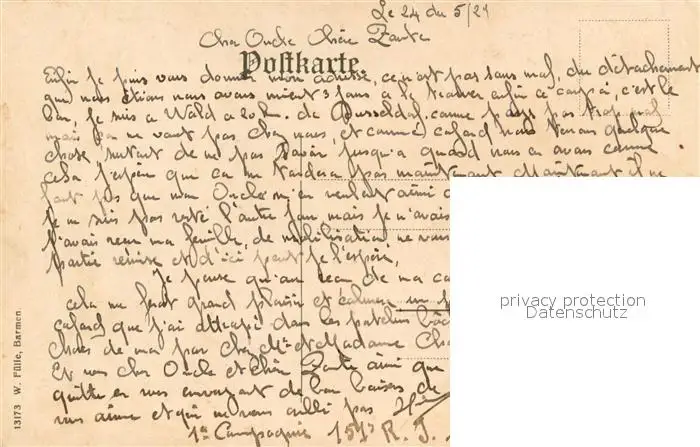 Le 24 du 5/21
Cher Oncle Chère Tante
Postkarte.
Enfin je puis vous donner mon adresse, ce n'est pas sans mal, du détachement
que nous étions nous avons mient 3 jours a le trouver enfin ce coup ci, c'est le
bon, je suis a Wald a 20 km. de Dusseldorf. comme pays pas trop mal
mais ça ne vaut pas chez nous, et comme cafard nous tenons quelque
chose, surtout de ne pas savoir jusqu'a quand nous en avons comme
cela j'espère que ça ne tardera pas maintenant. Maintenant il ne
faut pas que mon Oncle m'en veulent
je ne suis pas resté l'autre jour mais je n'avais
j'avais reçu ma feuille, de mobilisation, ne vous
partie remise et d'ici peut je l'espère,
Je pense qu'au reçu de ma ca
cela me ferat grand plaisir et calmera un p
cafard que j'ai attrapé dans les patelins
choses de ma par chez Mr et Madame Cha
Et vous cher Oncle et chère Tante ainsi que
quitte en vous envoyant de bon baisers de
vous aime et qui ne vous oublie pas
1e Compagnie 151e R. I.
privacy protection
Datenschutz
13173 W. Fülle, Barmen.